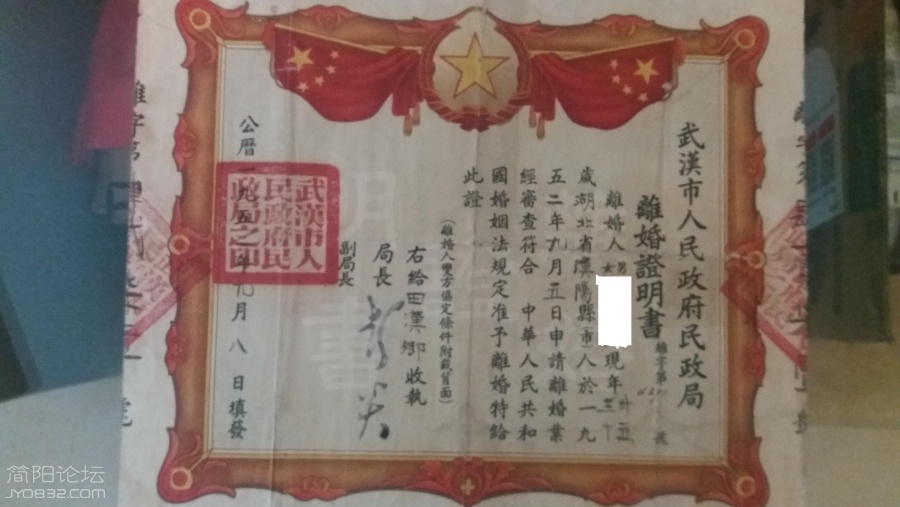 武漢市人民政府民政局
離婚證明書
離字第 號
離婚人男女 現年卅五三十
歲湖北省漢陽縣(市)人於一九
五二年九月五日申請離婚業
經審查符合 中華人民共和
國婚姻法規定准予離婚特給
此證
(離婚人雙方協定條件附載背面)
右給田漢卿收執
局長
副局長
公曆一九五二年九月八日填發
武漢市人民政府民政局之印
離字第
號
明
書
简阳论坛
JY0832.COM